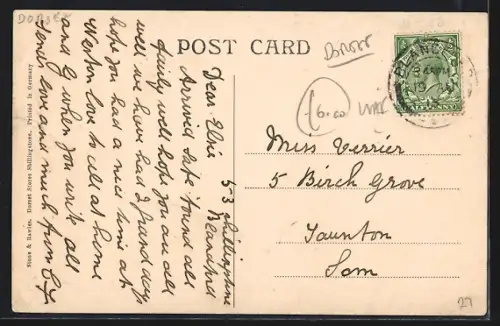 DORSET
POST CARD
Dorset
6.00
BLANDF
53 Shillingstone
Blandford
Dear Elsie
Arrived safe found all
fairly well hope you are all
well we have had a grand day
hope you had a nice time at
Weston love to all at home
and when you write all
love and much from
Miss Verrier
5 Birch Grove
Taunton
Som
Stone & Davies, Dorset Stores Shillingstone. Printed in Germany
27